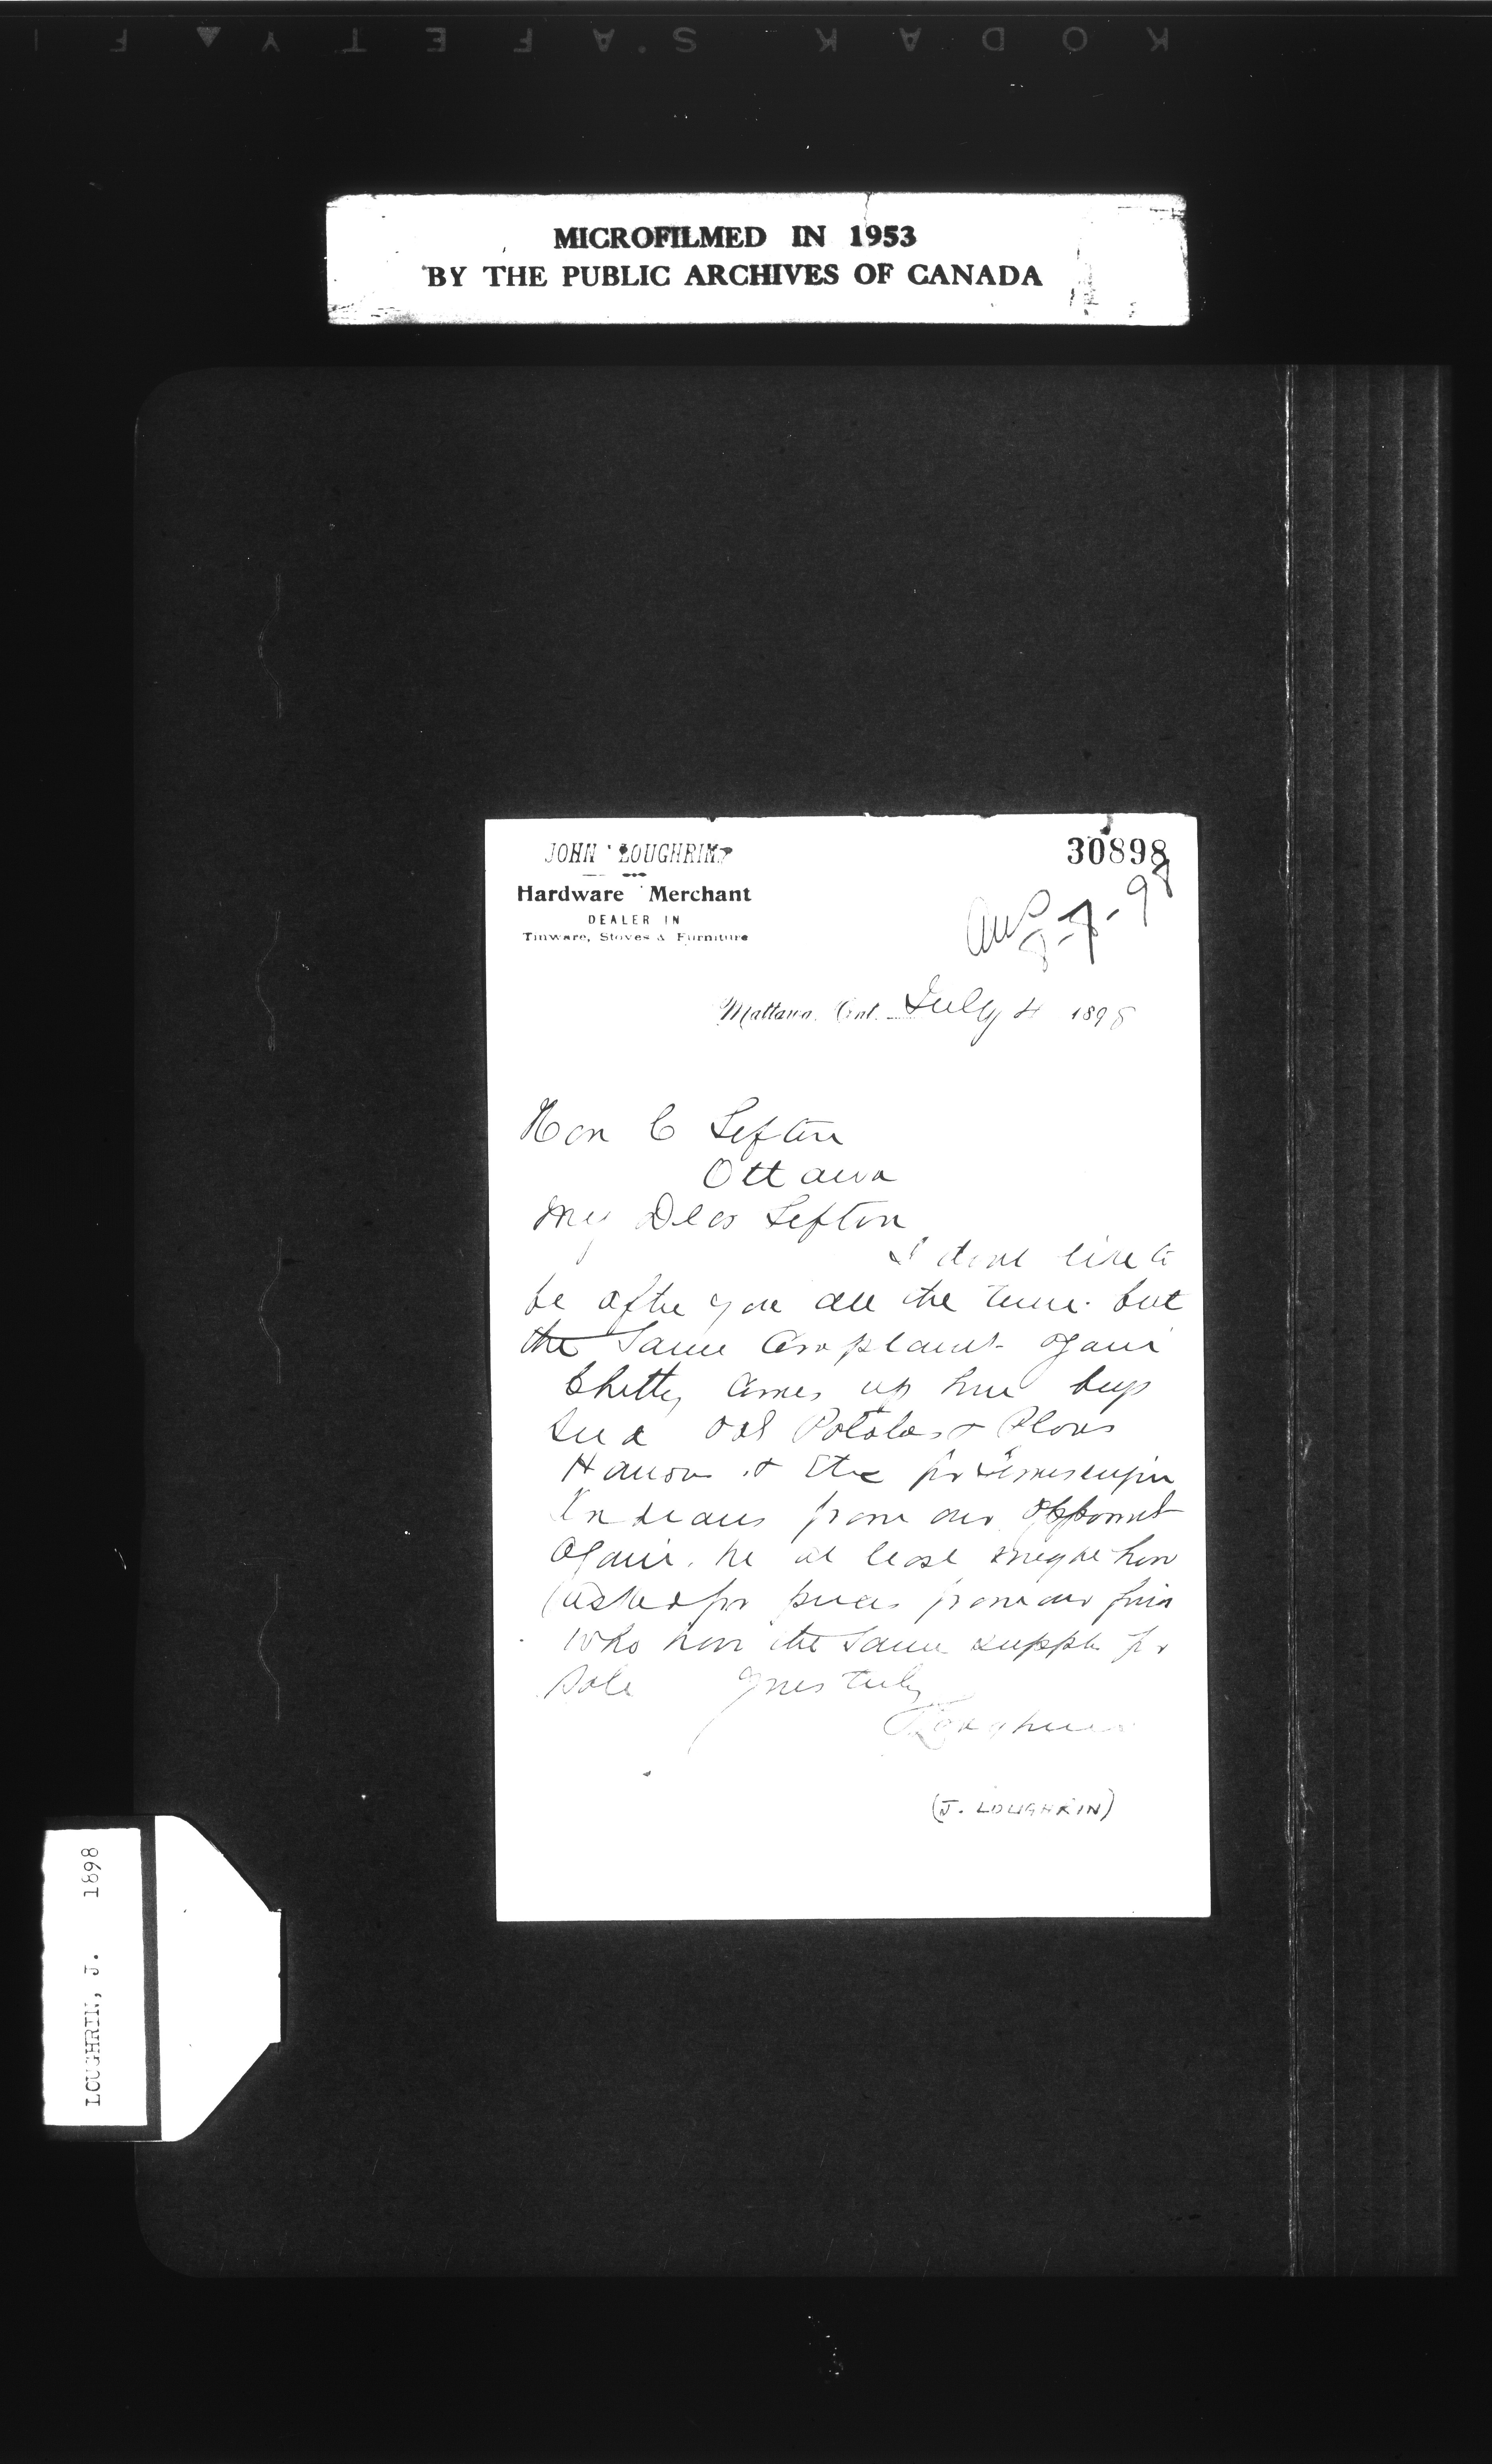 KODAK SAFETY F
MICROFILMED IN 1953
BY THE PUBLIC ARCHIVES OF CANADA
JOHN LOUGHRIN
30898
Hardware Merchant
DEALER IN
Tinware, Stoves & Furniture
Mattawa, Ont. July 4 1898
Hon C Sifton
Ottawa
My Dear Sifton
I dont like to
be after you all the time but
the Same Complaint again
Chitty Comes up here buys
Seed Oats Potatoes & Plows
Harrows & Etc for Temiscamingue
Indians from our opponent
again. he at least might have
asked for prices from our friend
who have the Same supplies for
Sale Yours truly
J Loughrin
(J. LOUGHRIN)
LOUGHRIN, J. 1898